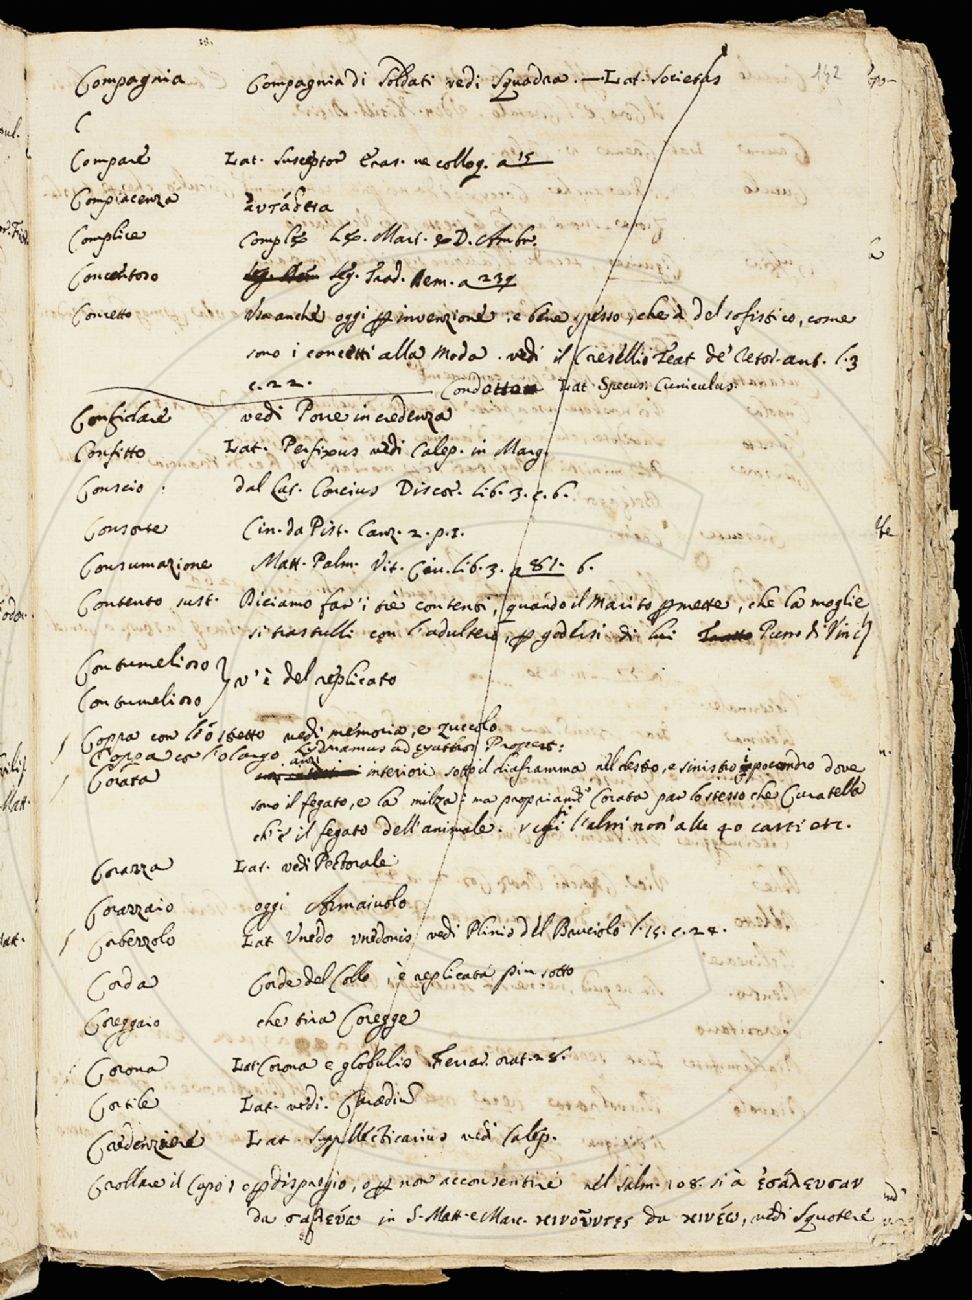 142
Compagnia Compagnia di Soldati vedi Squadra. — Lat. Societas
C
Compare Lat. Susceptor Eras. ne colloq. a 15
Compiacenza
Complice Complex Lex. Mart. D. Ambr.
Concentoro Leg. Trad. Mem. a 237
Concetto Usa anche oggi per invenzione: e bene spesso, che à del sofistico, come
sono i concetti alla moda. vedi il Cresollio Teat. de Retor. ant. l. 3
c. 22. Condotto Lat. Specus. Cuniculus.
Confidare vedi Porre in credenza
Confitto Lat. Perfixus vedi Calep. in Marg.
Conscio dal Lat. Concius Discor. lib. 3. c. 6.
Consorte Cin. da Pist. Canz. 2. p. 1.
Consumazione Matt. Palm. Vit. Civ. lib. 3. a 81. 6.
Contento sust. Diciamo far' i tre contenti, quando il Marito permette, che la moglie
si trastulli con l'adultero, per godersi di lui Piero di Vinc
Contumelioso } v'è del replicato
Contumelioso
Coppa con l'ò stretto vedi memoria, e zuccolo
Coppa co l'o largo, ad cyathos Propert:
Corata interiori sotto il diaframma nel destro, e sinistro ipocondro dove
sono il fegato, e la milza: ma propriamte Corata par lo stesso che Curatella
ch'è il fegato dell'animale. l'altri nori alle 40 carti etc.
Corazza Lat. vedi Pettorale
Corazzaio oggi Armaiuolo
Corbezzolo Lat Unedo unedonis vedi Plinio del Bauciolo l. 15. c. 24.
Corda Corde del Collo, è replicata piu sotto
Coreggaio che tira Coregge
Corona Lat Corona e globulis Ferrar. orat. 28.
Cortile Lat. vedi. Cavædiũ
Credenziere Lat. Suppellecticarius vedi Calep.
Crollare il Capo per dispregio, o per non acconsentire nel Salm. 108. si à ἐσάλευσαν
da σαλεύω in S. Matt. e Marc. κινοῦντες da κινέω, vedi Squotere